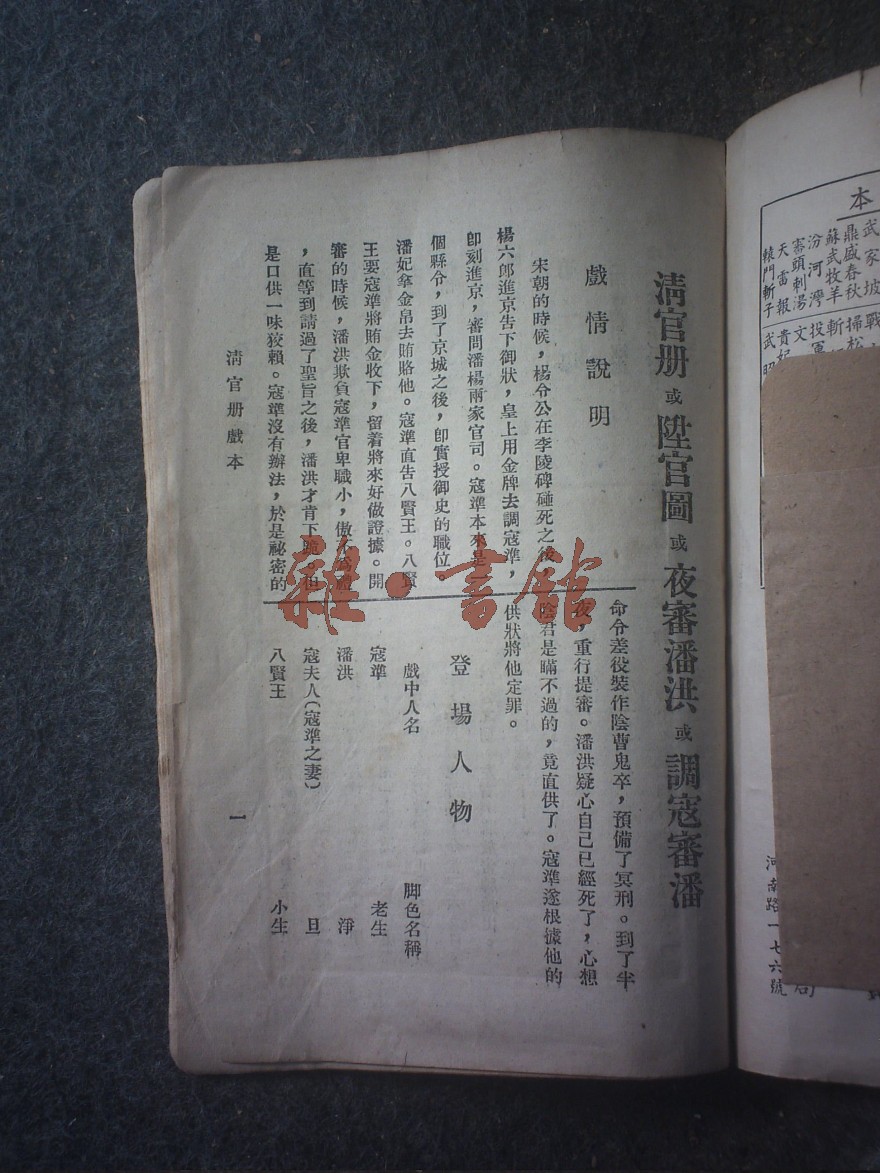 清官册 或 陞官圖 或 夜審潘洪 或 調寇審潘
戲情說明
宋朝的時候，楊令公在李陵碑碰死之後，
楊六郎進京告下御狀，皇上用金牌去調寇準，
卽刻進京，審問潘楊兩家官司。寇準本來是一
個縣令，到了京城之後，卽實授御史的職位
潘妃拿金帛去賄賂他。寇準直告八賢王。八賢
王要寇準將賄金收下，留着將來好做證據。開
審的時候，潘洪欺負寇準官卑職小，傲不為禮
，直等到請過了聖旨之後，潘洪才肯下跪。但
是口供一味狡賴。寇準沒有辦法，於是祕密的
命令差役裝作陰曹鬼卒，預備了冥刑。到了半
夜，重行提審。潘洪疑心自己已經死了，心想
陰君是瞞不過的，竟直供了。寇準遂根據他的
供狀將他定罪。
登場人物
戲中人名 脚色名稱
寇準 老生
潘洪 淨
寇夫人（寇準之妻） 旦
八賢王 小生
清官册戲本 一
本
武家坡
鼎盛春秋
蘇武牧羊
汾河灣
審頭刺湯
天雷報
轅門斬子
戰
掃松
斬
投軍
文
貴妃
武昭
河南路一七六號
局
雜·書館